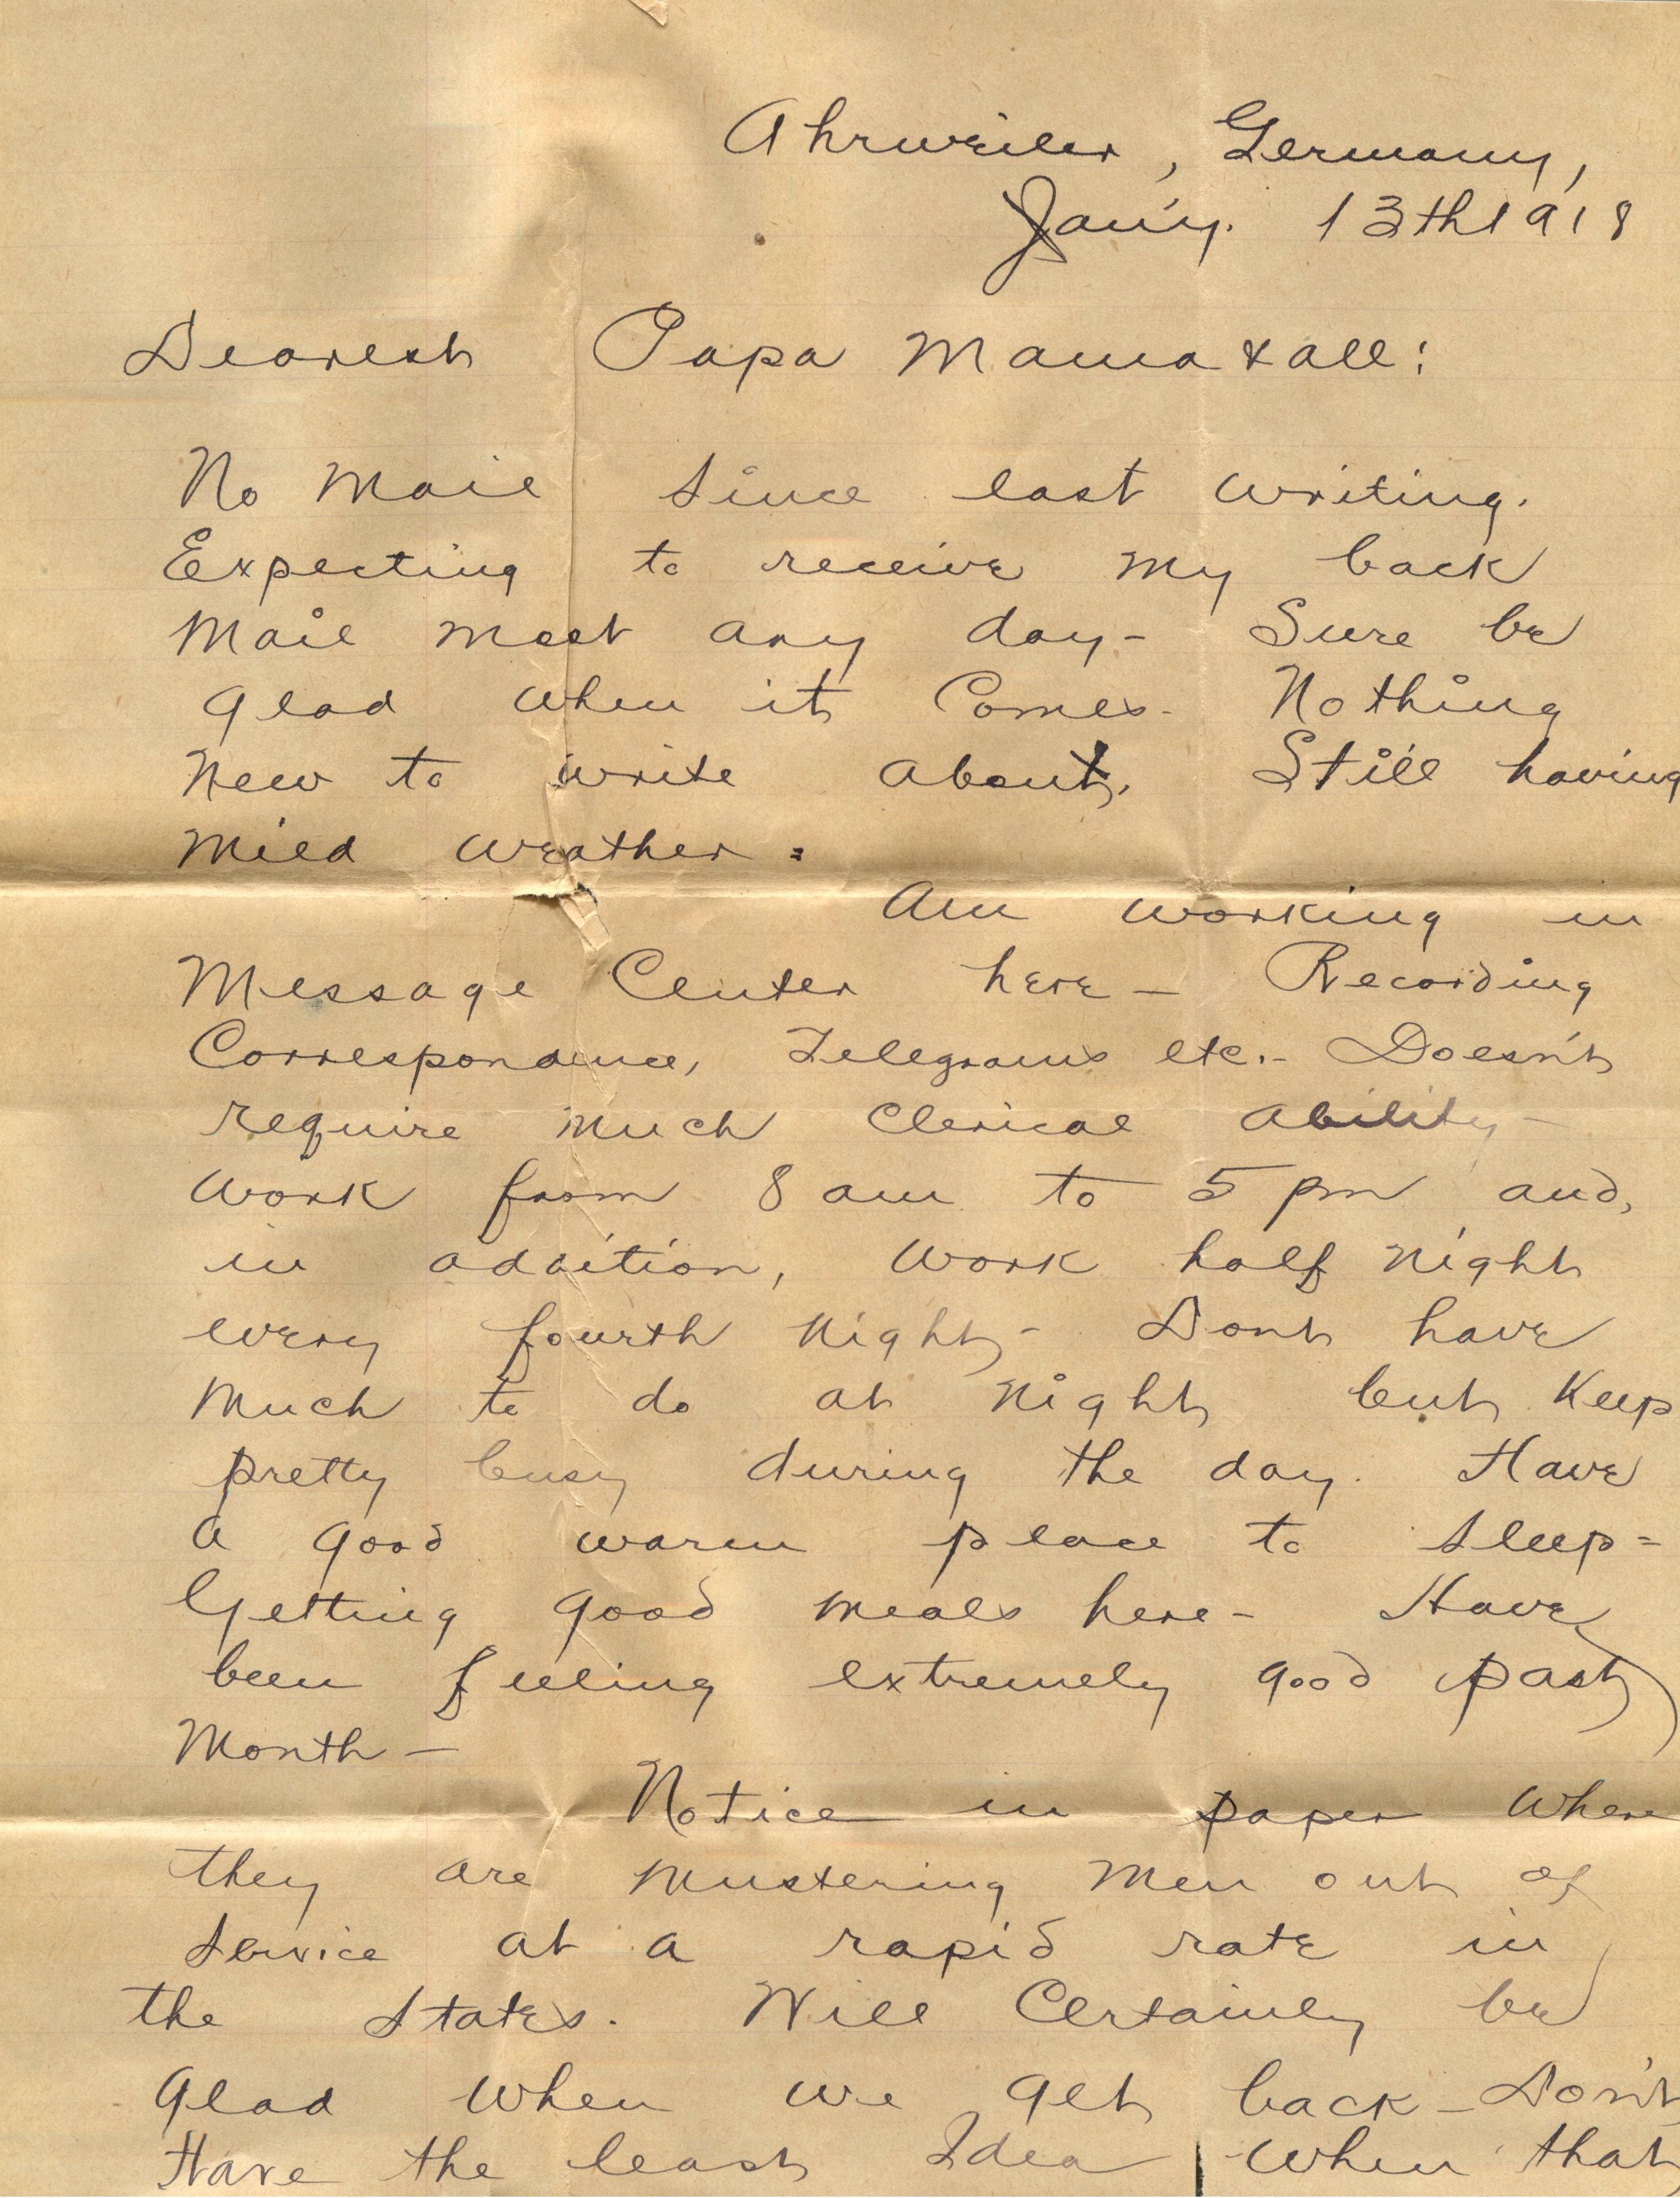 Ahrweiler, Germany,
Jan'y. 13th 1918
Dearest Papa Mama & all:
No Mail since last writing.
Expecting to receive my back
Mail most any day - Sure be
glad when it Comes - Nothing
New to write about. Still having
Mild weather =
Am working in
Message Center here - Recording
Correspondence, Telegrams etc. - Doesn't
require much Clerical ability -
Work from 8 am to 5 pm and,
in addition, work half night
every fourth night - Dont have
Much to do at night but Keep
pretty busy during the day. Have
a good warm place to sleep =
Getting good meals here - Have
been feeling extremely good past
Month -
Notice in paper where
they are mustering men out of
service at a rapid rate in
the States. Will Certainly be
Glad when we get back - Don't
Have the least Idea when that